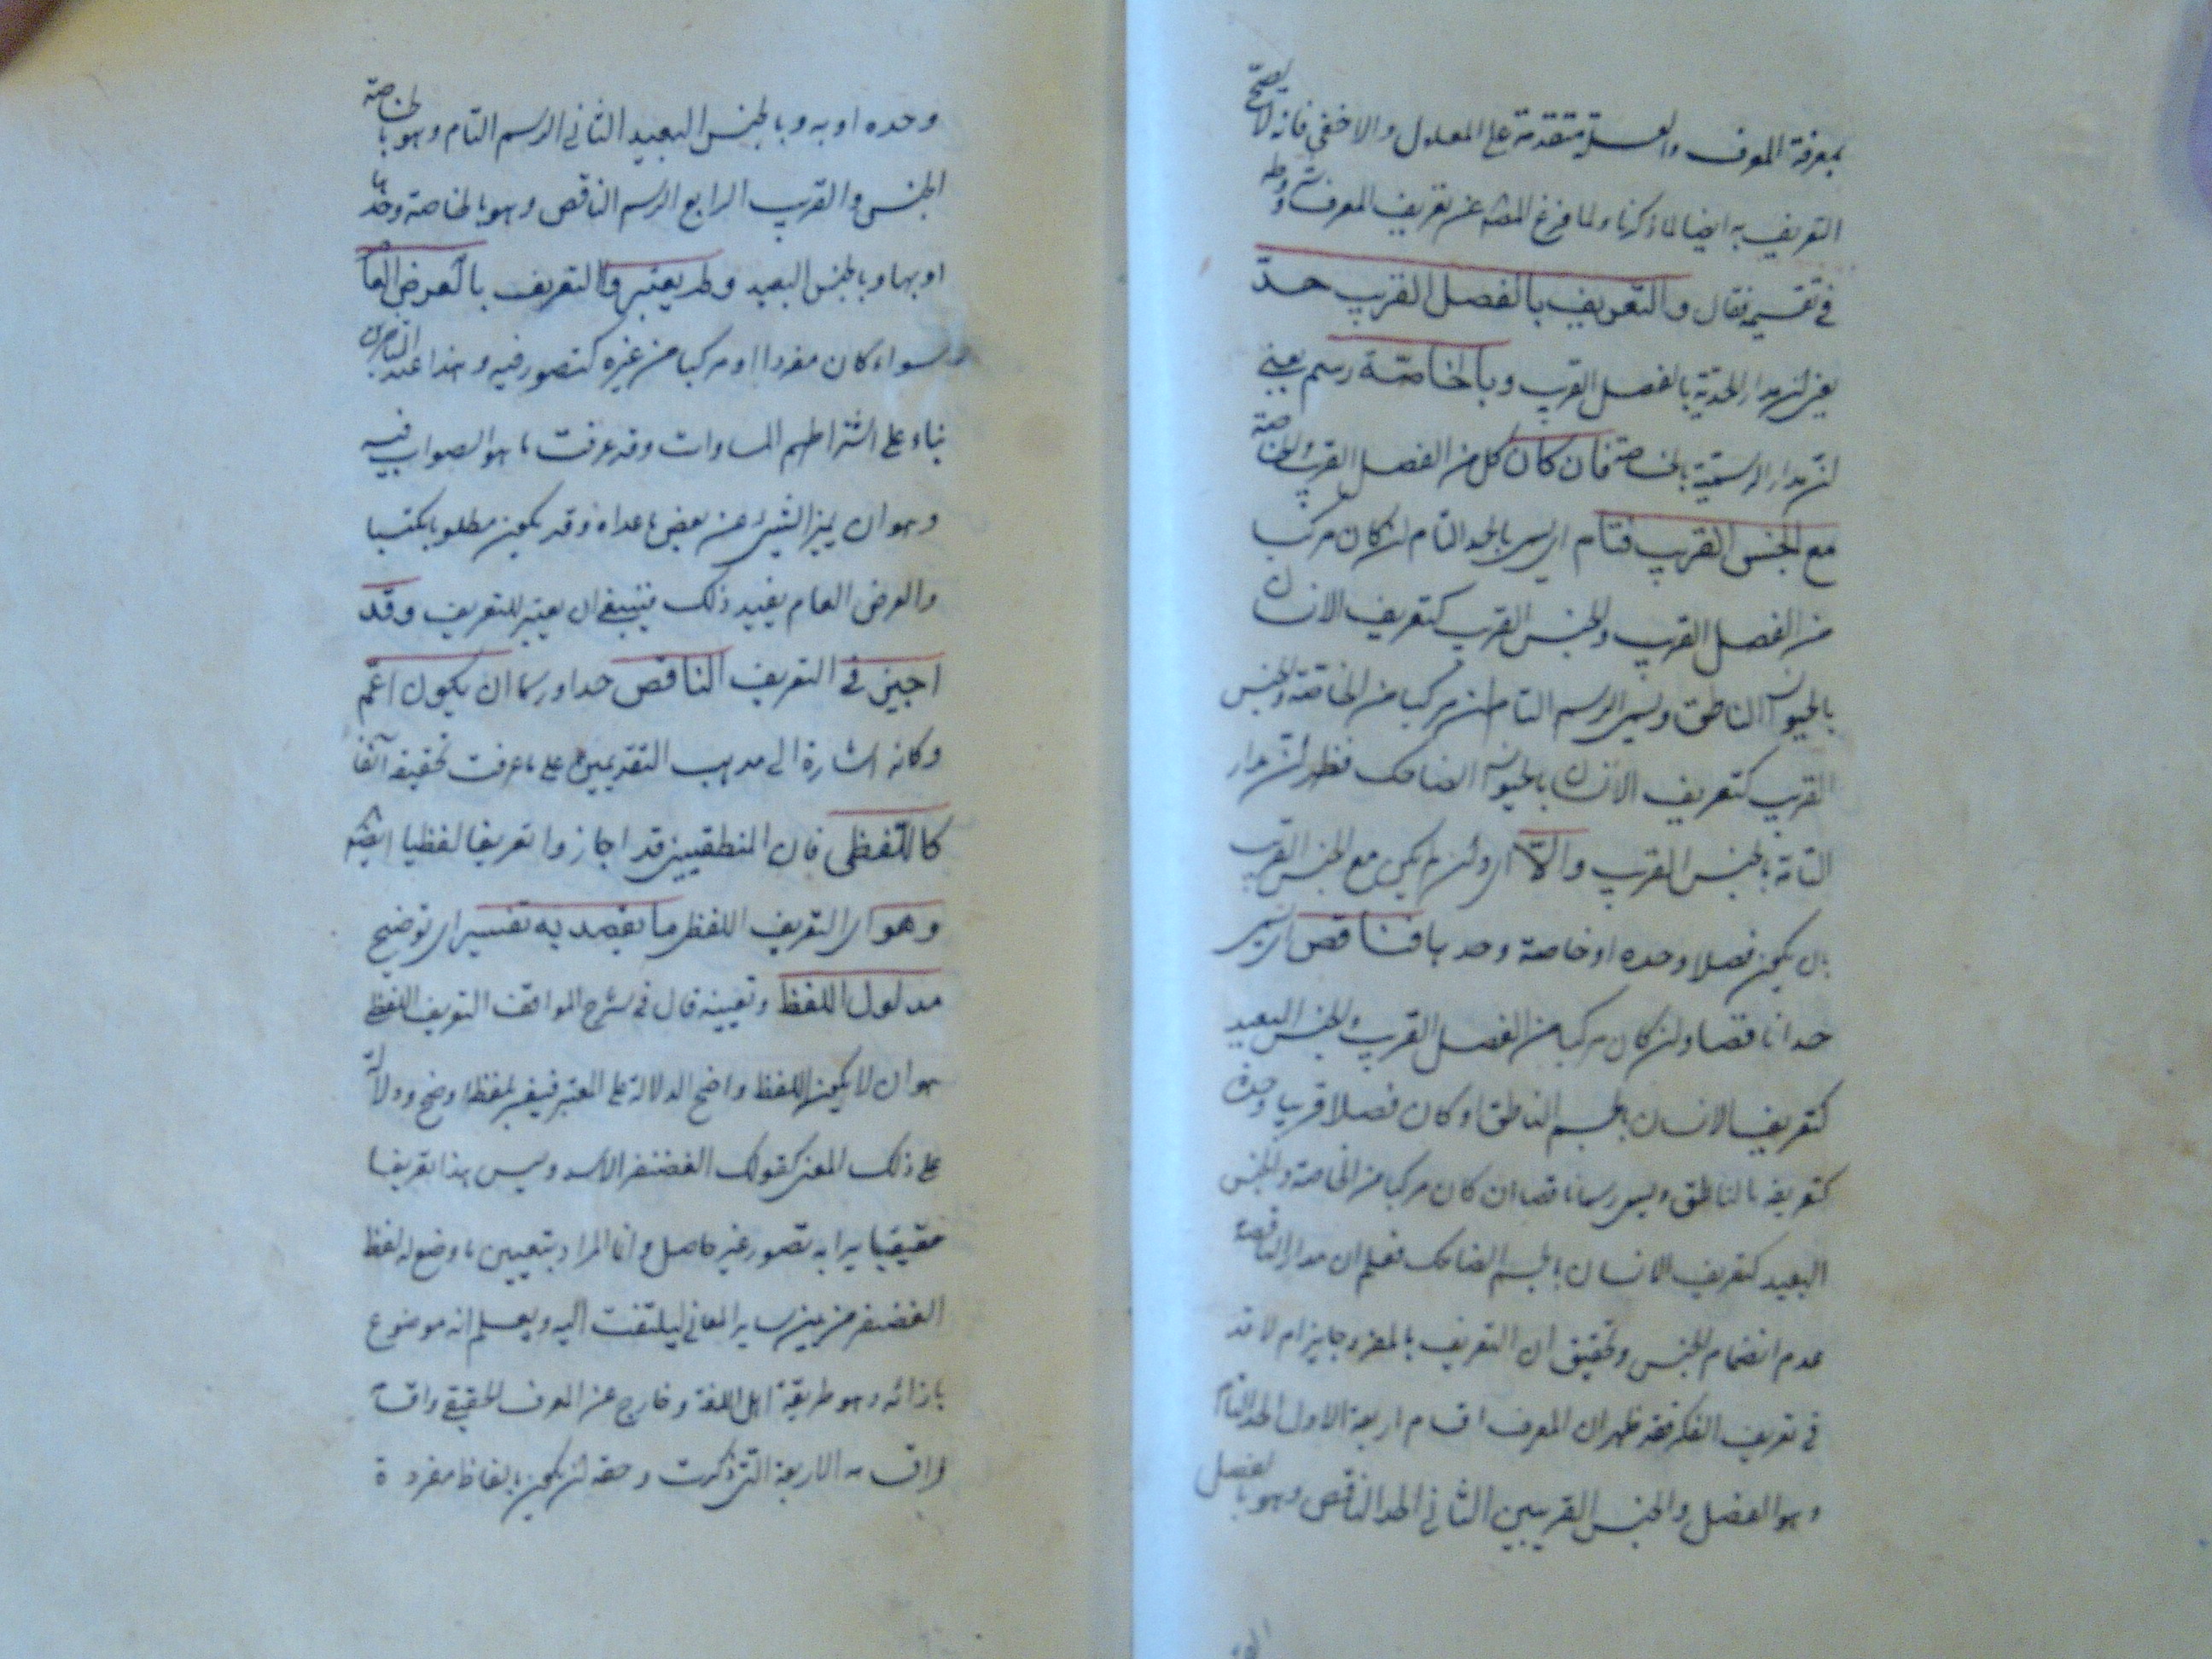 بمعرفة المعرف والعلة متقدمة على المعلول والاخفى فانه لا يصح
التعريف به ايضا لما ذكرنا ولما فرغ المصـ عن تعريف المعرف شرع
في تقسيمه فقال والتعريف بالفصل القريب حدّ
يعني لن مدار الحدية بالفصل القريب وبالخاصّة رسم يعني
لن مدار الرسمية بالخاصة فان كان كل من الفصل القريب والخاصة
مع الجنس القريب فتام اى يسمى بالحد التام لن كان مركبا
من الفصل القريب والجنس القريب كتعريف الانسان
بالحيوان الناطق ويسمى الرسم التام ان مركبا من الخاصة والجنس
القريب كتعريف الانسان بالحيوان الضاحك فظهر لن مدار
التامة بالجنس القريب والاّ اى ولن لم يكن مع الجنس القريب
بل يكون فصلا وحده او خاصة وحدها فناقص اى يسمى
حدا ناقصا ولن كان مركبا من الفصل القريب والجنس البعيد
كتعريف الانسان بالجسم الناطق او كان فصلا قريبا وحده
كتعريفه بالناطق ويسمى رسما ناقصا ان كان مركبا من الخاصة والجنس
البعيد كتعريف الانسان بالجسم الضاحك فعلم ان مدار الناقصة
عدم انضمام الجنس وتحقيق ان التعريف بالمفرد جايز ام لا قد
في تعريف الفكر فقد ظهر ان المعرف اقسام اربعة الاول الحد التام
وهو الفصل والجنس القريبين الثاني الحد الناقص وهو بالفصل
وحده او به وبالجنس البعيد الثاني الرسم التام وهو بالخاصة
الجنس والقريب الرابع الرسم الناقص وهو بالخاصة وحدها
او بها وبالجنس البعيد ولم يعتبروا التعريف بالعرض العام
سواء كان مفردا او مركبا من غيره كتصور فيه وهذا عند المتأخرين
بناء على اشتراطهم المساوات وقد عرفت ما هو الصواب فيه
وهو ان يميز الشيئ عن بعض ما عداه وقد يكون مطلوبا مكتسبا
والعرض العام يفيد ذلك فينبغي ان يعتبر للتعريف وقد
اجيز في التعريف الناقص حدا ورسما ان يكون اعمّ
وكانه اشارة الى مذهب المتقدمين على ما عرفت تحقيقه آنفا
كاللفظى فان المنطقيين قد اجازوا تعريفا لفظيا ايضا
وهو اى التعريف اللفظى ما يقصد به تفسير اى توضيح
مدلول اللفظ وتعيينه قال في شرح المواقف التعريف اللفظى
هو ان لا يكون اللفظ واضح الدلالة على المعنى فيفسر بلفظ اوضح دلالة
على ذلك المعنى كقولك الغضنفر الاسد وليس هذا تعريفا
حقيقيا يراد به تصور غير حاصل وانما المراد تعيين ما وضع له لفظ
الغضنفر من بين ساير المعانى ليلتفت اليه ويعلم انه موضوع
بازائه وهو طريقة اهل اللغة وخارج عن المعرف الحقيقي واقسا
واقسامه الاربعة التى ذكرت وحقه لن يكون بالفاظ مفردة